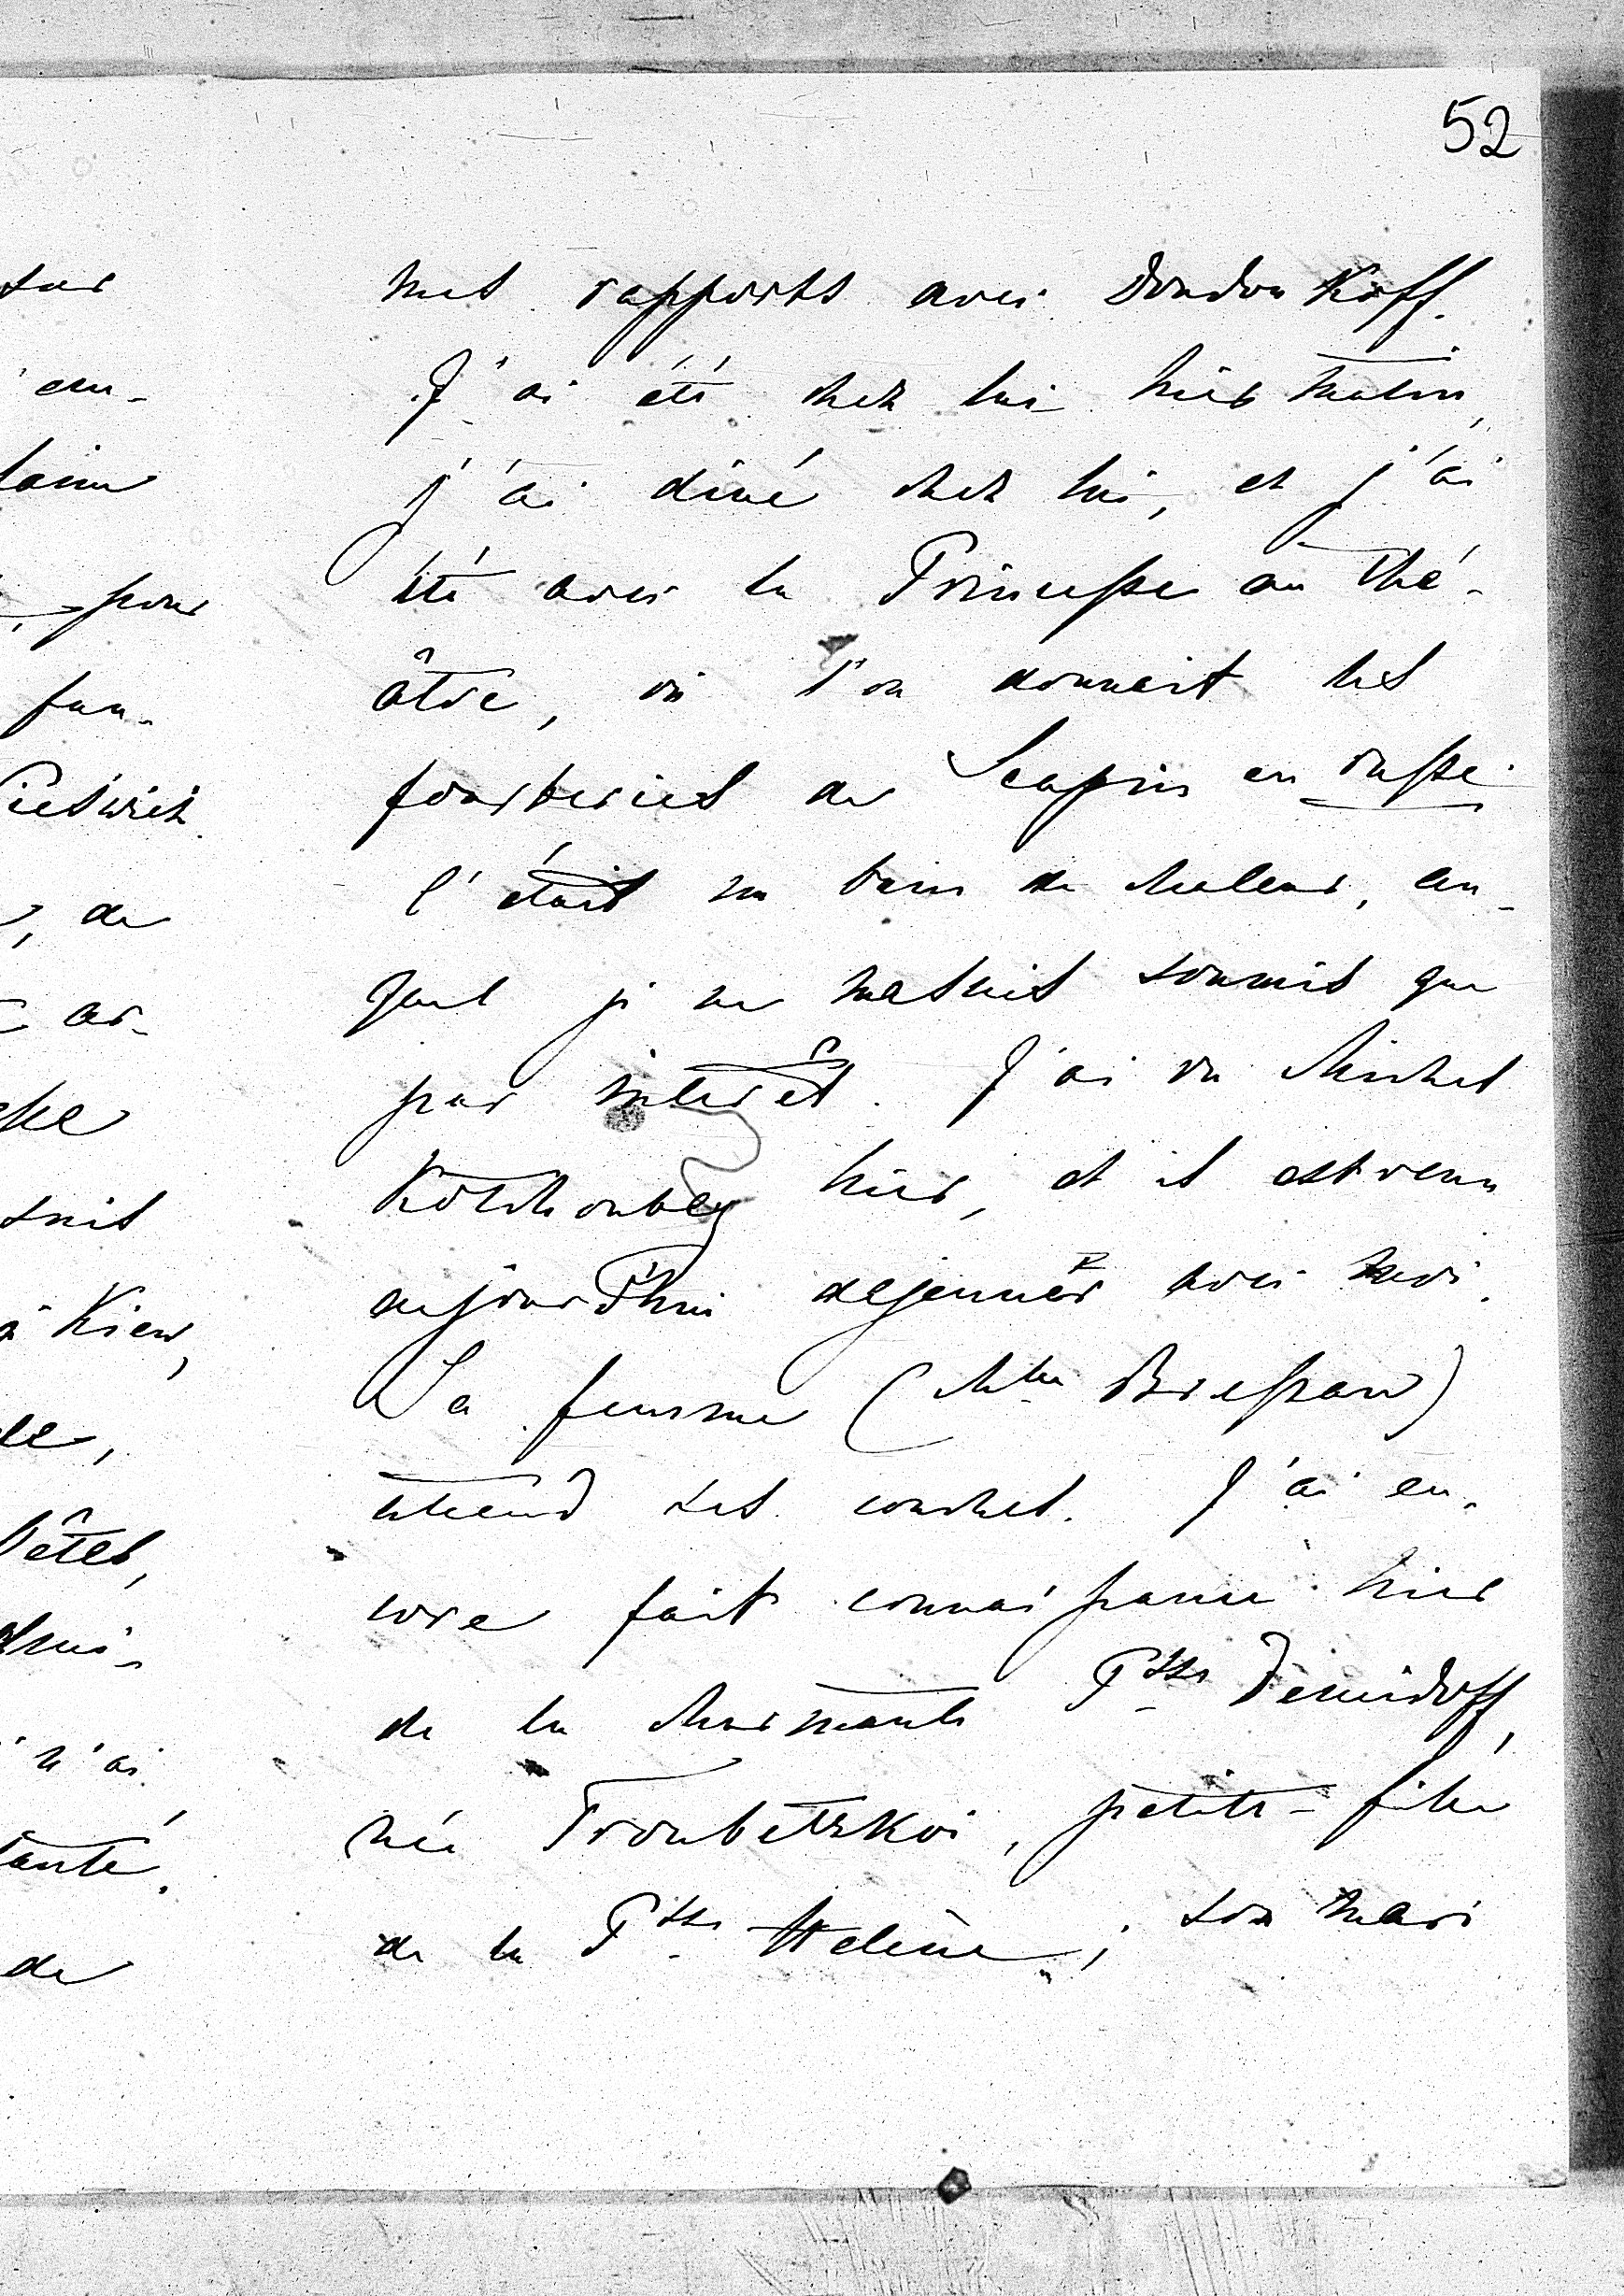 52
mes rapports avec Dondoukoff.
J'ai été chez lui hier matin,
j'ai diné chez lui, et j'ai
été avec la Princesse au thé-
âtre, où l'on donnait les
fourberies de Scapin en russe.
C'était un bain de chaleur, au-
quel je ne me suis soumis que
par interêt. J'ai vu Michel
Kotchoubey hier, et il est venu
aujourd'hui dejeuner avec moi.
Sa femme (Mlle Bressan)
attend ses couches. J'ai en-
core fait connaissance hier
de la charmante Psse Demidoff,
née Troubetzkoi, petite-fille
de la Psse Helène; son mari
sur
pour
de
ar-
suis
à Kiew,
fêtes,
n'ai
de